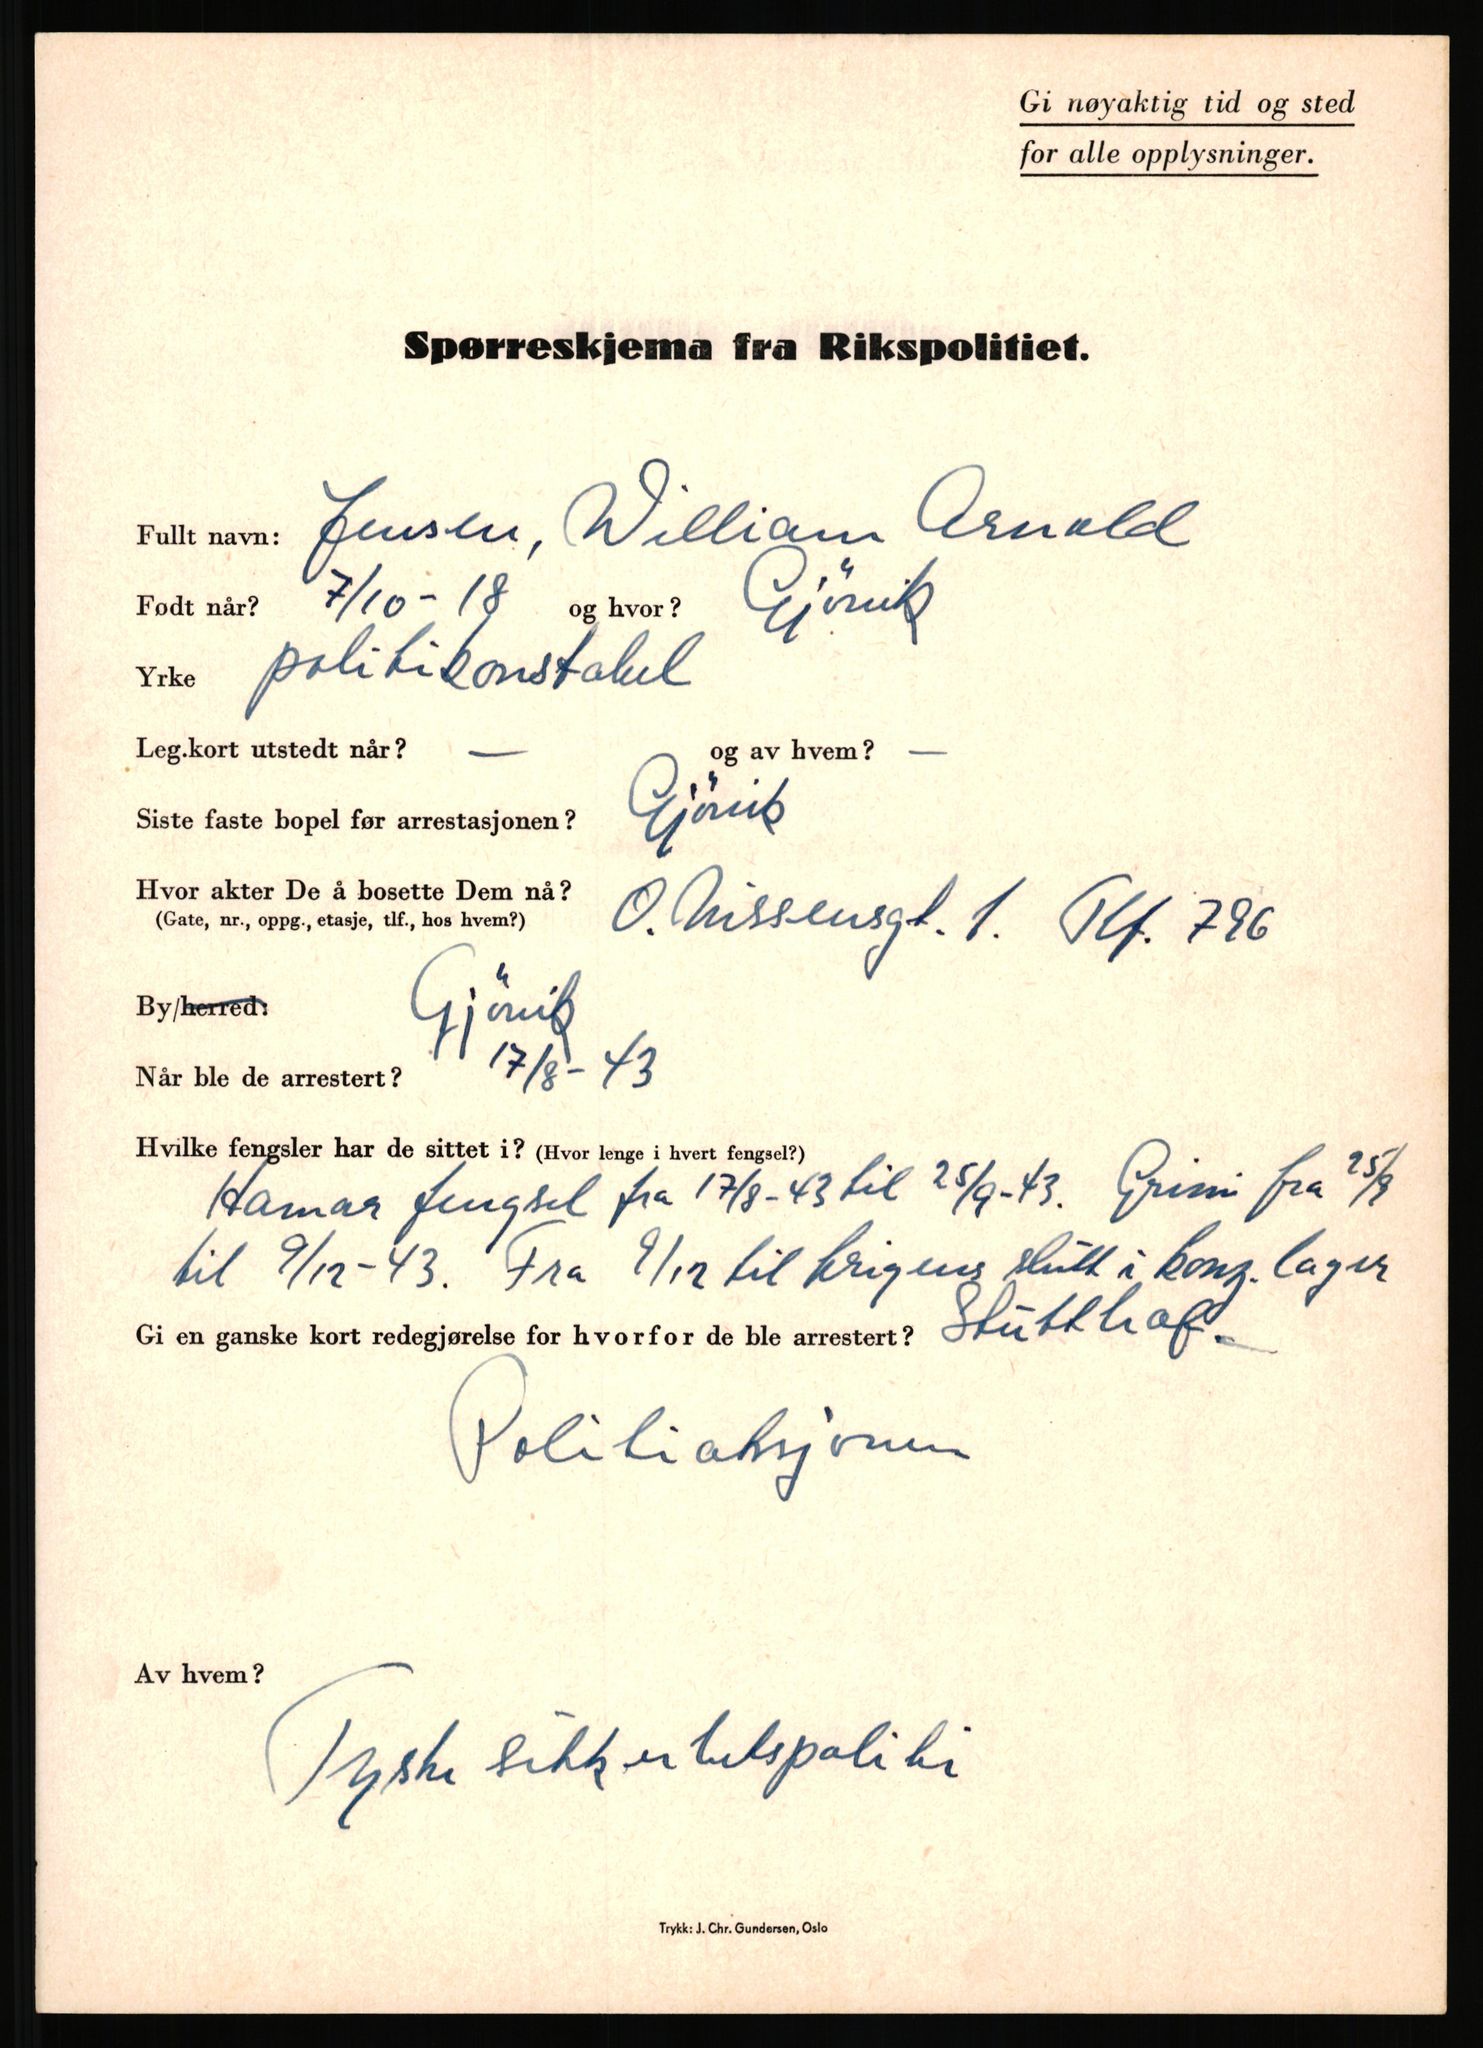 Gi nøyaktig tid og sted
for alle opplysninger.
Spørreskjema fra Rikspolitiet.
Fullt navn: Jensen, William Arnold
Født når? 7/10-18 og hvor? Gjövik
Yrke politikonstabel
Leg.kort utstedt når? — og av hvem? —
Siste faste bopel før arrestasjonen? Gjövik
Hvor akter De å bosette Dem nå? O. Nissensgt. 1. Tlf. 796
(Gate, nr., oppg., etasje, tlf., hos hvem?)
By/herred: Gjövik
Når ble de arrestert? 17/8-43
Hvilke fengsler har de sittet i? (Hvor lenge i hvert fengsel?)
Hamar fengsel fra 17/8-43 til 25/9-43. Grini fra 25/9
til 9/12-43. Fra 9/12 til krigens slutt i konz.lager
Gi en ganske kort redegjørelse for hvorfor de ble arrestert? Stutthof.
Politiaksjonen
Av hvem?
Tyske sikkerhetspoliti
Trykk: J. Chr. Gundersen, Oslo